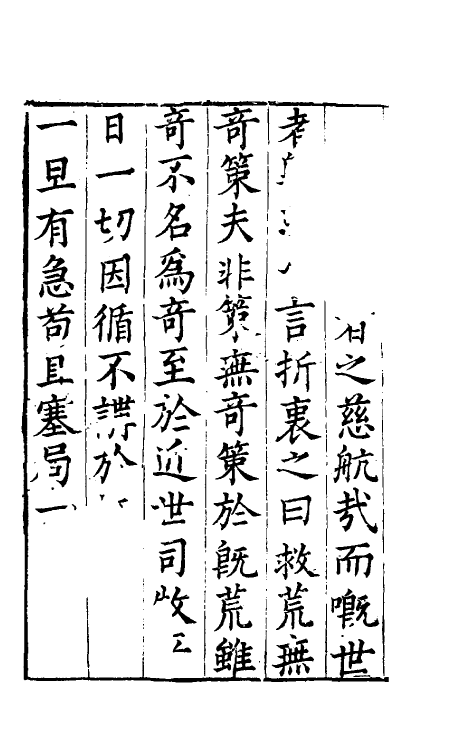 之慈航哉而嘅世
者言折衷之曰救荒無
奇策夫非策無奇策於既荒雖
奇不名為奇至於近世司牧
日一切因循不講於
一旦有急苟且塞局一